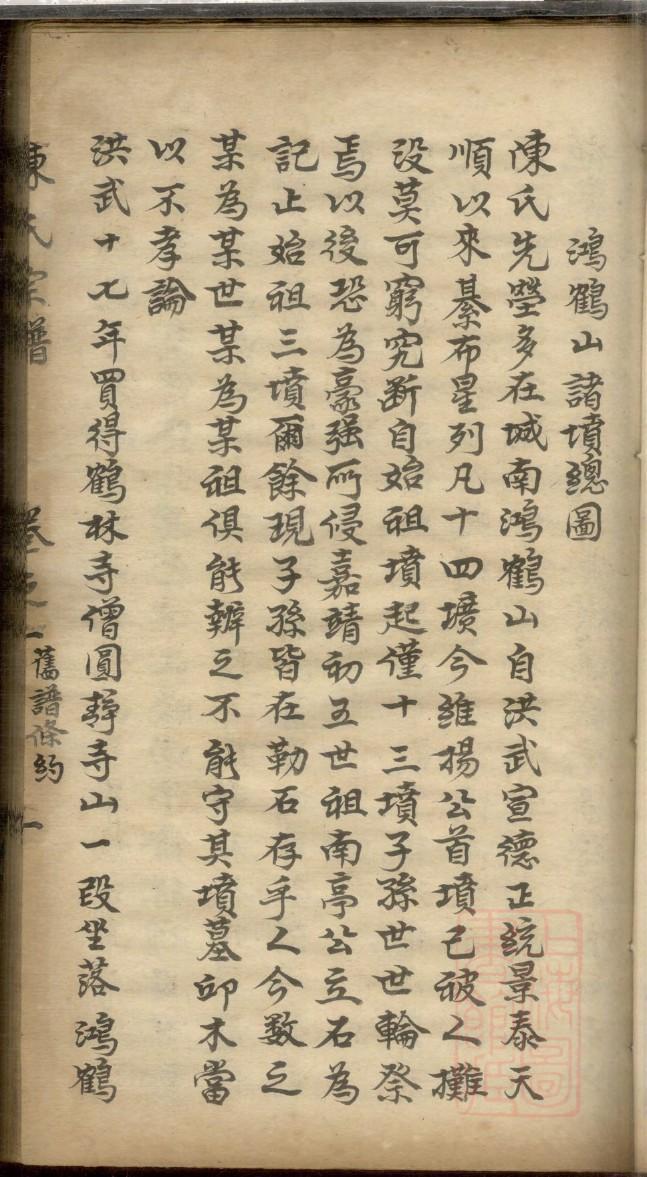 鴻鶴山諸墳總圖
陳氏先塋多在城南鴻鶴山自洪武宣德正統景泰天
順以來綦布星列凡十四壙今維揚公首墳已被人攤
沒莫可窮究斷自始祖墳起僅十三墳子孫世世輪祭
焉以後恐為豪强所侵嘉靖初五世祖南亭公立石為
記止始祖三墳爾餘現子孫皆在勒石存乎人今數之
某為某世某為某祖俱能辦之不能守其墳墓卯木當
以不孝論
洪武十七年買得鶴林寺僧圓靜寺山一段坐落鴻鶴
陳氏宗譜
舊譜條約
一